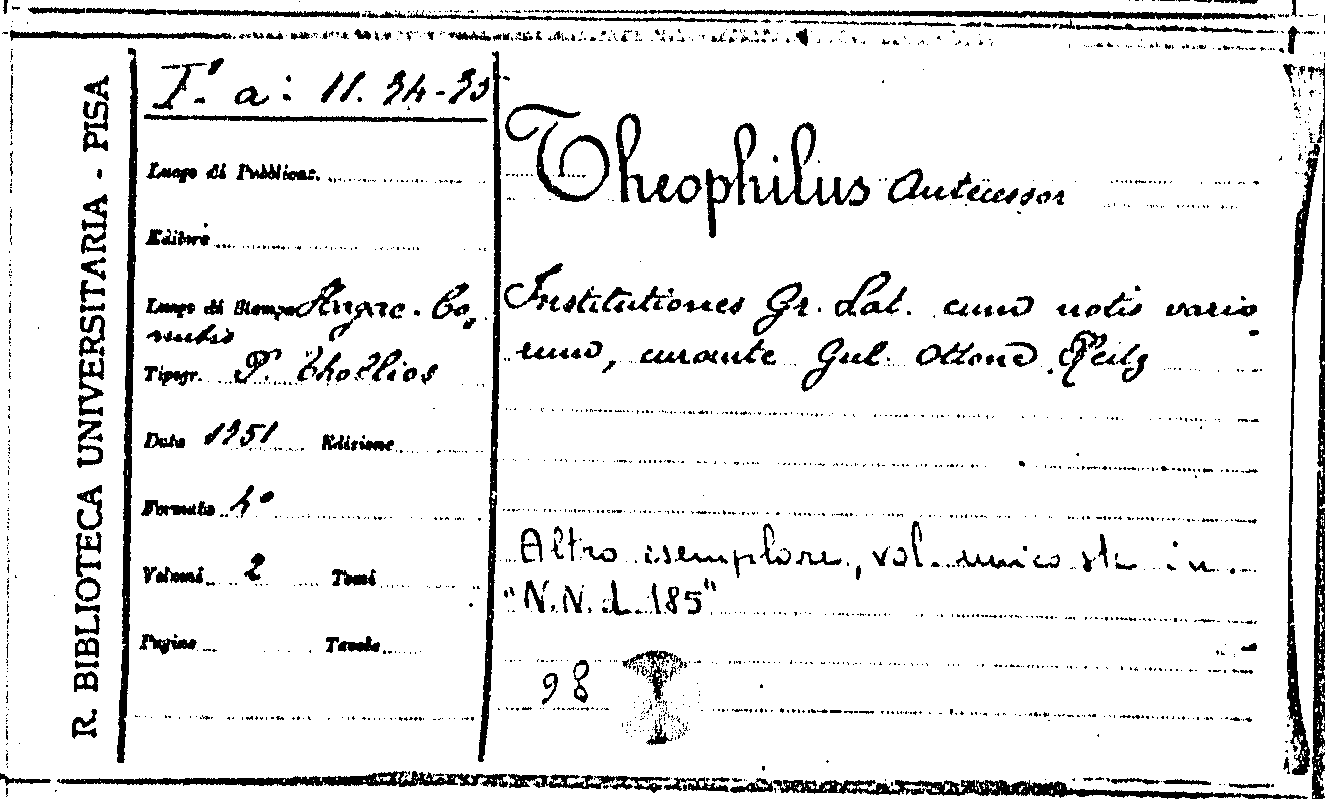 R. BIBLIOTECA UNIVERSITARIA - PISA
I.ª a: 11. 34-35
Luogo di Pubblicaz.
Editore
Luogo di Stampa Hagae-Co,
mitis
Tipogr. P. Thollios
Data 1751 Edizione
Formato 4°
Volumi 2 Tomi
Pagine Tavole
Theophilus Antecessor
Institutiones Gr. Lat. cum notis vario
rum, curante Gul. Ottone Reitz
Altro esemplare, vol. unico sta in
"N.N. d. 185"
98